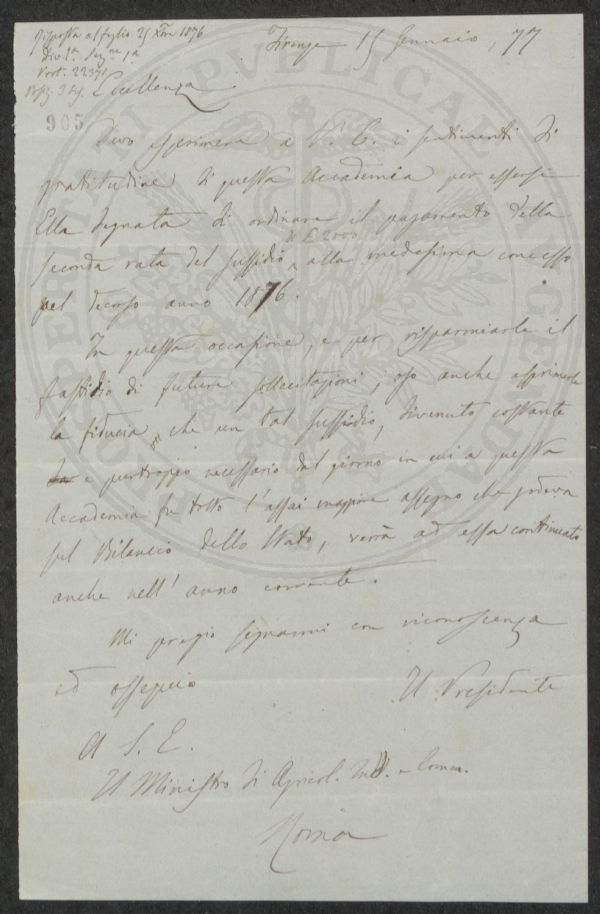 Risposta al foglio 25 Xbre 1876
Div. 1ª Sez.ne 1ª
Prot. 22371
Firenze 15 Gennaio, 77
Eccellenza
905
Devo esprimere a V. E. i sentimenti di
gratitudine di questa Accademia per essersi
Ella degnata di ordinare il pagamento della
di £ 2000
seconda rata del sussidio alla medesima concesso
pel decorso anno 1876.
In questa occasione, e per risparmiarle il
fastidio di future sollecitazioni, oso anche esprimerle
la fiducia, che un tal sussidio, divenuto costante
e purtroppo necessario dal giorno in cui a questa
Accademia fu tolto l'assai maggiore assegno che godeva
sul Bilancio dello Stato, verrà ad essa continuato
anche nell'anno corrente.
Mi pregio segnarmi con riconoscenza
ed ossequio
Il Presidente
A S. E.
Il Ministro di Agricol. Ind. e Comm.
Roma